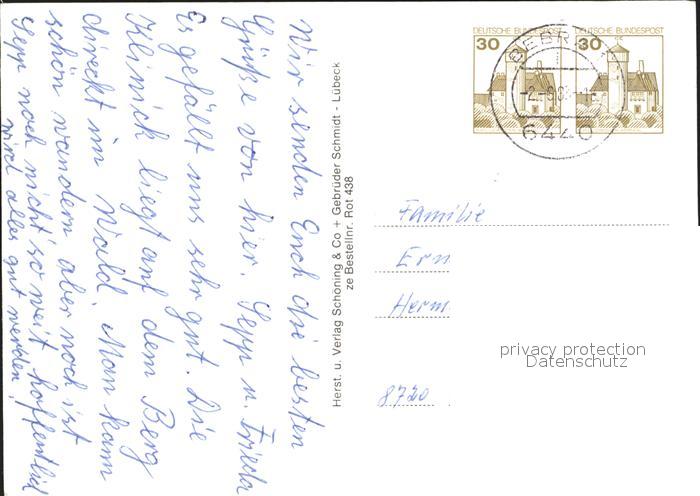 Wir senden Euch die besten
Grüße von hier. Sepp u. Frieda
Es gefällt uns sehr gut. Die
Klinick liegt auf dem Berg
direckt im Wald. Man kann
schön wandern aber noch ist
Sepp noch nicht so weit hoffentlich
wird alles gut werden!
Herst. u. Verlag Schöning & Co + Gebrüder Schmidt - Lübeck
ze Bestellnr. Rot 438
DEUTSCHE BUNDESPOST
30
DEUTSCHE BUNDESPOST
30
BEBRA
6440
Familie
Ern
Herm
8720
privacy protection
Datenschutz